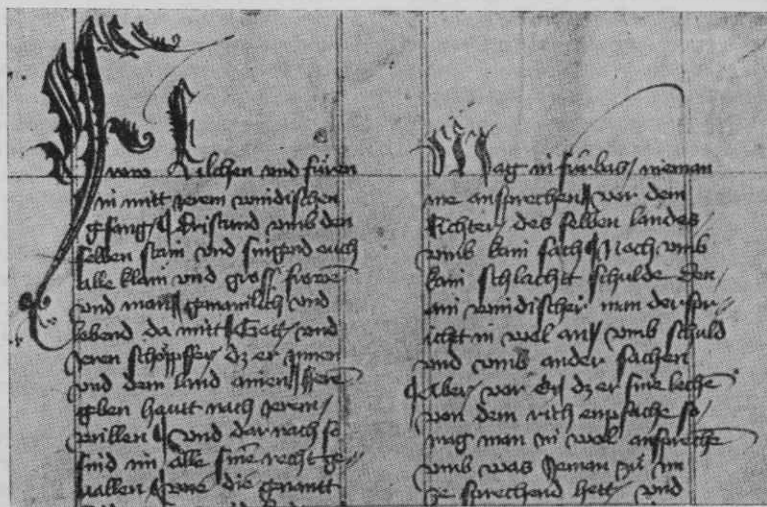 Kilchen vnd füren
in mitt jerem windischen
gesang / Dristund vmb den
selben stain vnd singend ouch
alle klain vnd gross frowe
vnd man gemainlich vnd
lobend da mitt Gott / vnd
jeren schöppffer / dz er jnnen
vnd dem land ainen here
geben hautt nach jerem /
willen / vnd dar nach so
sind im alle sine recht ge-
uallen / die genantt
Mag in fürbas / nieman
me ansprechen / vor dem
Richter / des selben landes /
vmb kain sach / Noch vmb
kain schlachtt schulde den
ain windischer man der spr-
icht in wol an / vmb schuld
vnd vmb ander sachen
Aber / vor dz er sine leche
von dem rich enpfache so /
mag man in wol anspreche
vmb was Jeman zů im
ze sprechend hett / vnd